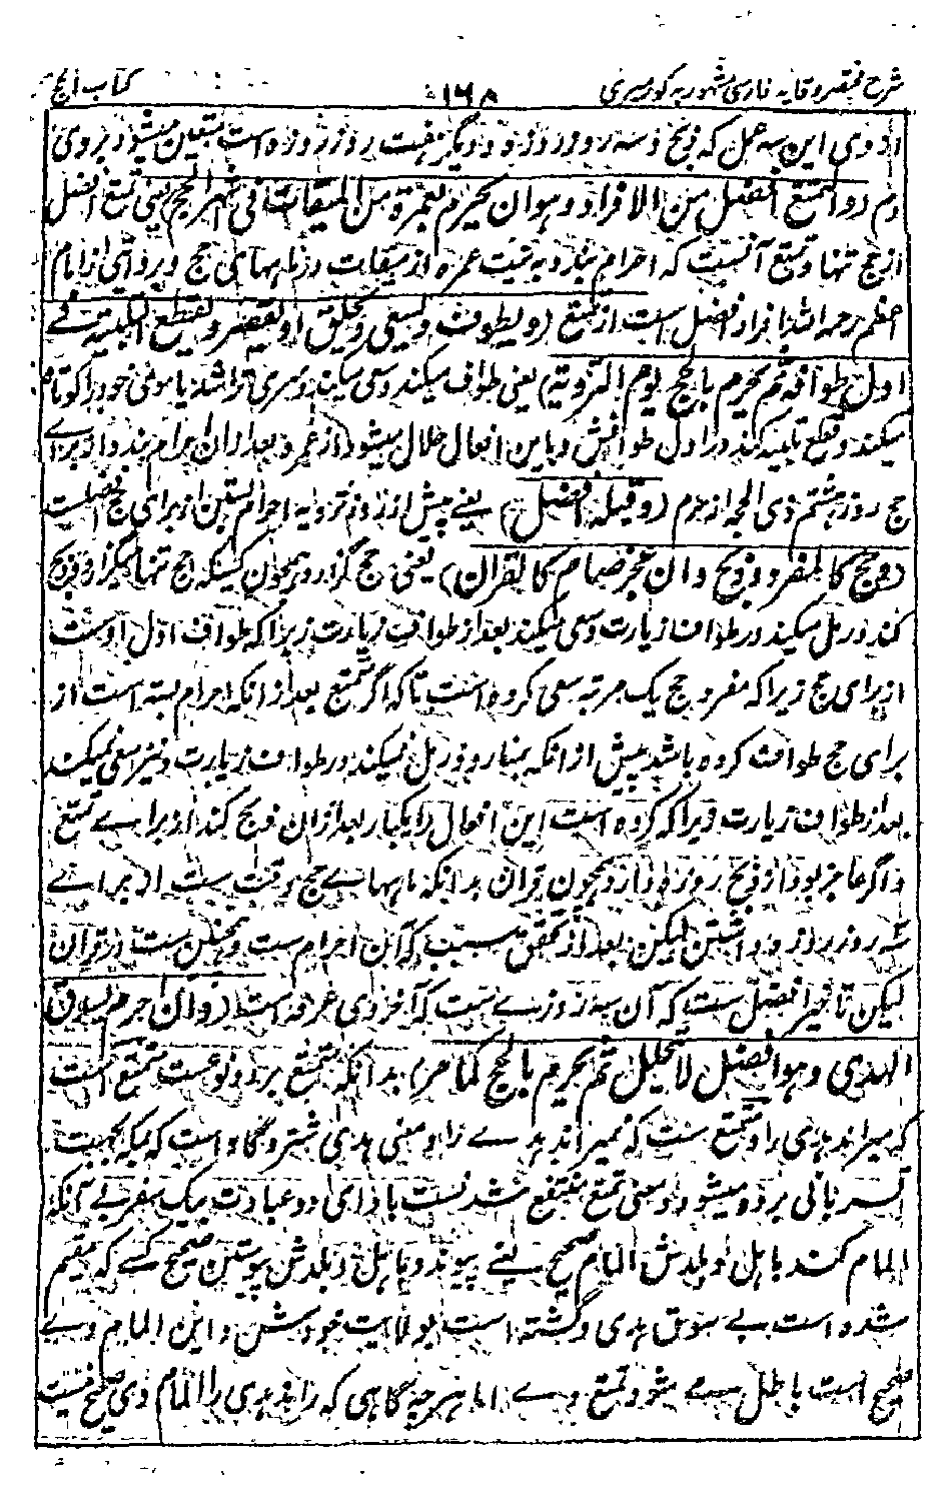 شرح مختصر وقایه فارسی مشهور به کورسری ۱۶۸ کتاب الحج
از وی این سه عمل که ذبح و سه روز روزه و دیگر هفت روز روزه است متعین میشود بر وی
دم (والتمتع افضل من الافراد وهو ان یحرم بعمرة من المیقات فی اشهر الحج) یعنی تمتع افضل
از حج تنها و تمتع آنست که احرام بندد به نیت عمره از میقات در ماههای حج و بروایتی از امام
اعظم رحمه الله افراد افضل است از تمتع (ویطوف ویسعی ویحلق او یقصر ویقطع التلبیة فی
اول طوافه ثم یحرم بالحج یوم الترویة) یعنی طواف میکند و سعی میکند و سر می تراشد یا موی خود را کوتاه
میکند و قطع تلبیه کند در اول طوافش و باین افعال حلال میشود از عمره بعد ازان احرام بندد از برای
حج روز هشتم ذی الحجه از حرم (وقبله افضل) یعنی پیش از روز ترویه احرام بستن از برای حج افضلیت
(وحج کالمفرد وذبح وان عجز صام کالقران) یعنی حج گزارد همچون کسیکه حج تنها میگزارد و ذبح
کند و رمل میکند در طواف زیارت و سعی میکند بعد از طواف زیارت زیرا که طواف اول اوست
از برای حج زیرا که مفرد حج یک مرتبه سعی کرده است تا که اگر متمتع بعد از انکه احرام بسته است از
برای حج طواف کرده باشد پیش از انکه بمنا رود رمل نمیکند در طواف زیارت و نیز سعی نمیکند
بعد از طواف زیارت زیرا که کرده است این افعال را یکبار بعد ازان ذبح کند از برای تمتع
و اگر عاجز بود از ذبح روزه دارد همچون قران بدانکه ماههای حج وقت ست از برای
سه روز روزه داشتن لیکن بعد از تحقق سبب که آن احرام ست و همچنین ست در قران
لیکن تاخیر افضل ست که آن سه روزی ست که آخر وی عرفه است (وان احرم بسوق
الهدی وهو افضل لا یتحلل ثم یحرم بالحج کما مر) بدانکه متمتع بر دو نوع ست متمتع است
که میراند هدی را و متمتع ست که نمیراند هدی را و معنی هدی شتر و گاو است که بمکه بجهت
قربانی برده میشود و معنی تمتع منتفع شدنست بادای دو عبادت بیک سفر بی آنکه
المام کند باهل و بلدش المام صحیح یعنی پیوندد باهل و بلدش پیوستن صحیح کسی که مقیم
شده است بی سوق هدی و گشته است بولایت خودش و این المام وی
صحیح است باطل می شود تمتع وی اما هر چه گاهی که راند هدی را المام وی صحیح نیست